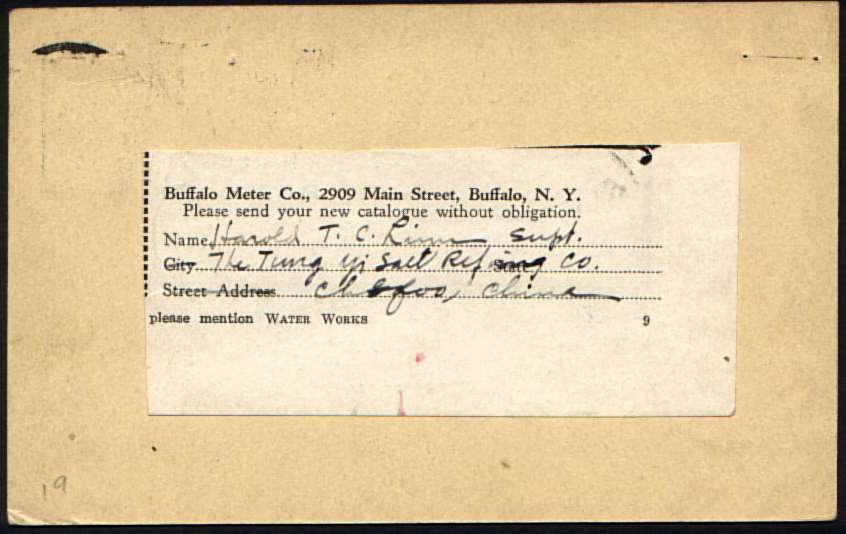 Buffalo Meter Co., 2909 Main Street, Buffalo, N. Y.
Please send your new catalogue without obligation.
Name Harold T. C. Supt.
City The Tung Yi Salt Refining Co.
Street Address Chefoo, China
please mention WATER WORKS 9
19